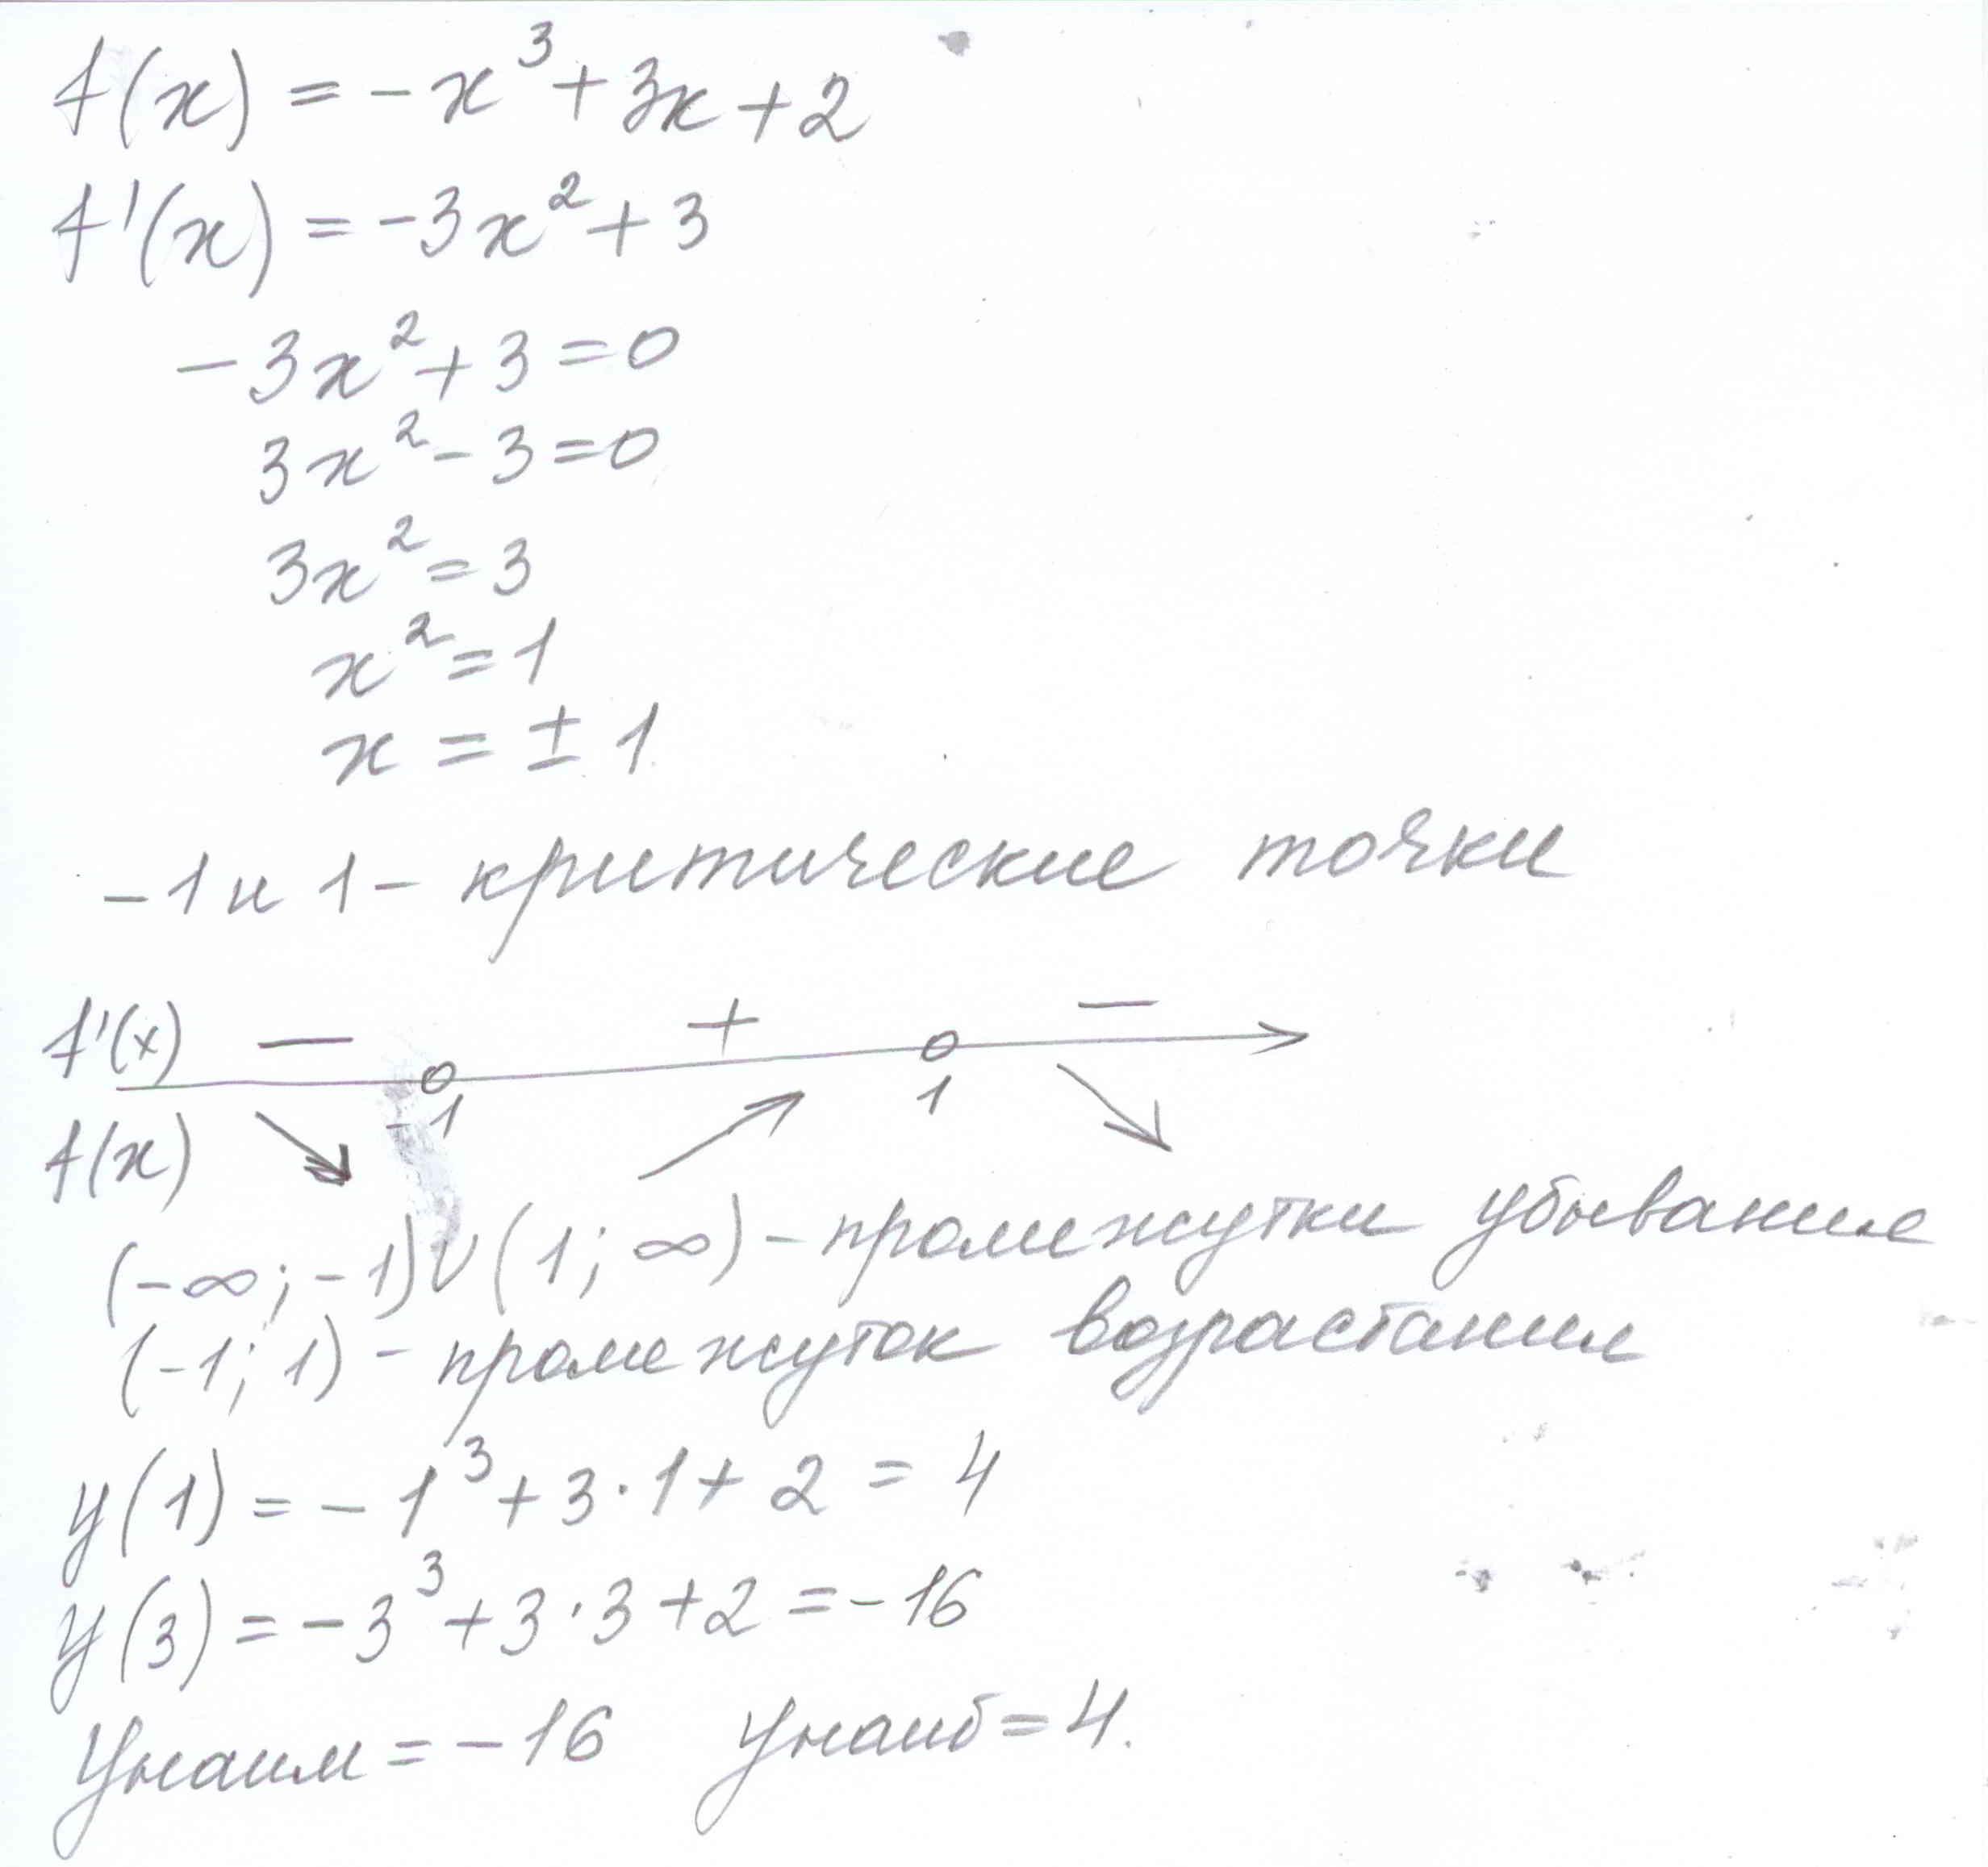 f(x) = -x³ + 3x + 2
f'(x) = -3x² + 3
-3x² + 3 = 0
3x² - 3 = 0
3x² = 3
x² = 1
x = ± 1
-1 и 1 - критические точки
f'(x) — + —
-1 1
f(x)
(-∞; -1) ∪ (1; ∞) - промежутки убывание
(-1; 1) - промежуток возрастания
y(1) = - 1³ + 3·1 + 2 = 4
y(3) = - 3³ + 3·3 + 2 = -16
Yнаим = -16 yнаиб = 4.